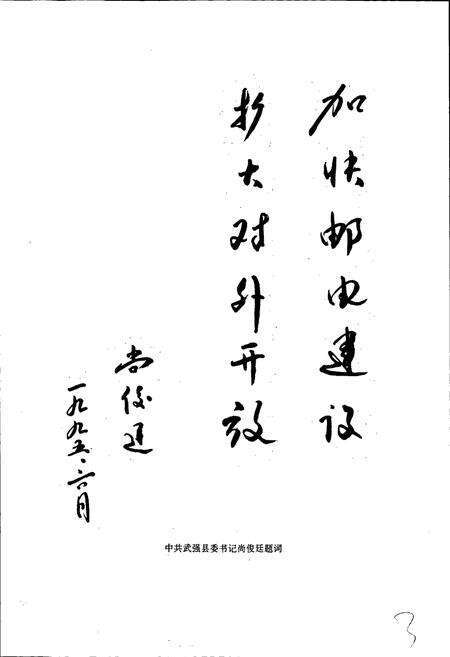 加快邮电建设
扩大对外开放
尚俊廷
一九九五·六月
中共武强县委书记尚俊廷题词
3